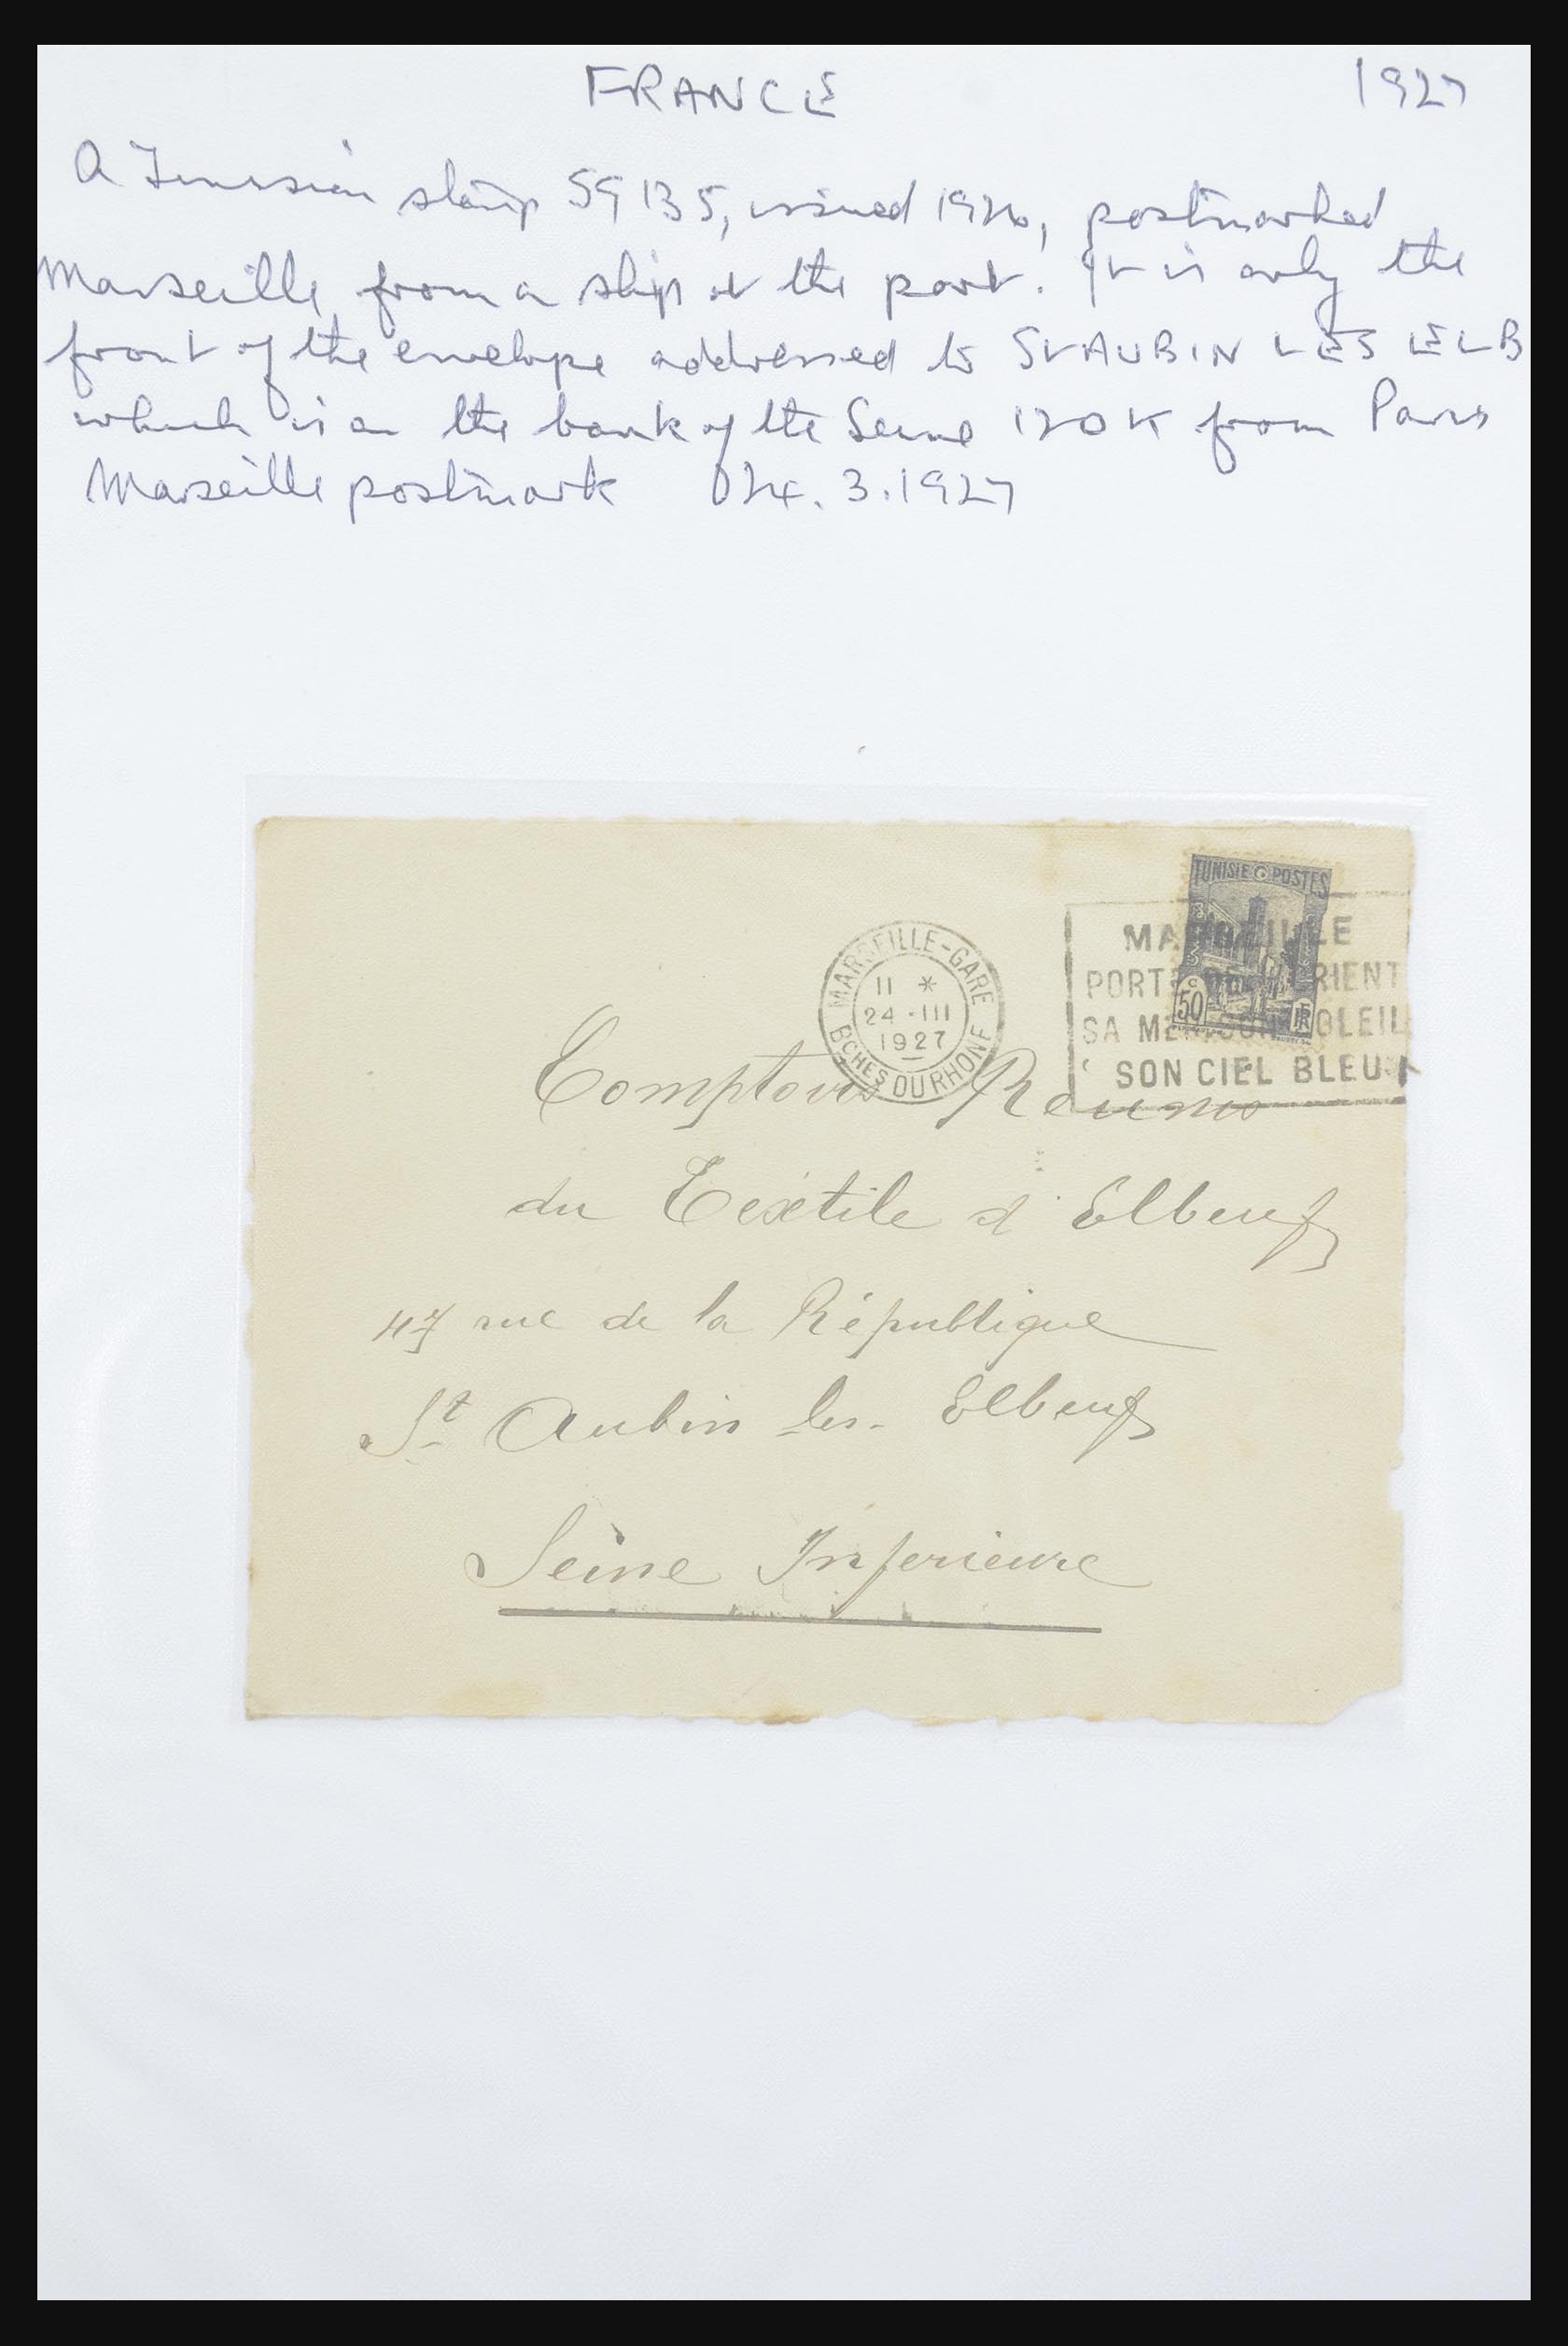 FRANCE 1927
A Tunisian stamp SG 135, issued 1926, postmarked
Marseille from a ship at the port. It is only the
front of the envelope addressed to St AUBIN LES ELB
which is on the bank of the Seine 120 K from Paris
Marseille postmark 24.3.1927
TUNISIE POSTES
50 c
RF
MARSEILLE-GARE
11 *
24-III
1927
BCHES DU RHONE
MARSEILLE
PORTE DE L'ORIENT
SA MER SON SOLEIL
SON CIEL BLEU
Comptoirs Réunis
du Textile d'Elbeuf
47 rue de la République
St Aubin les-Elbeuf
Seine Inferieure